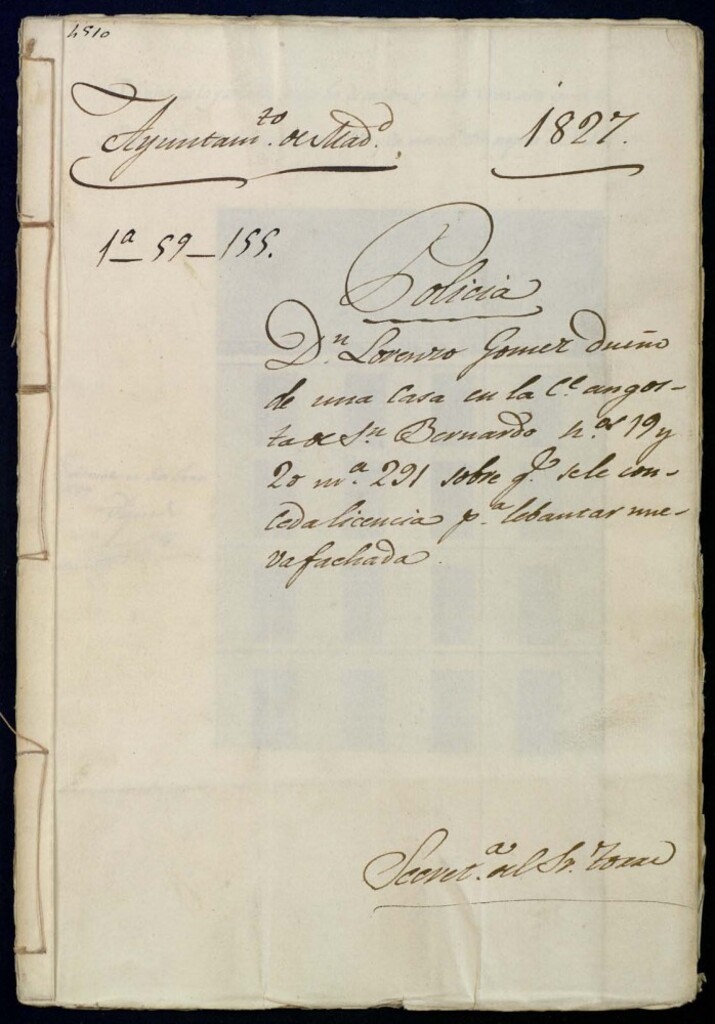 4510
Ayuntam.to de Mad.d 1827.
1a 59-155.
Policia
D.n Lorenzo Gomez dueño
de una Casa en la C.e angos-
ta de S.n Bernardo n.os 19 y
20 m.a 291 sobre q.e se le con-
ceda licencia p.a lebantar nue-
va fachada.
Secret.a del Sr. Torre